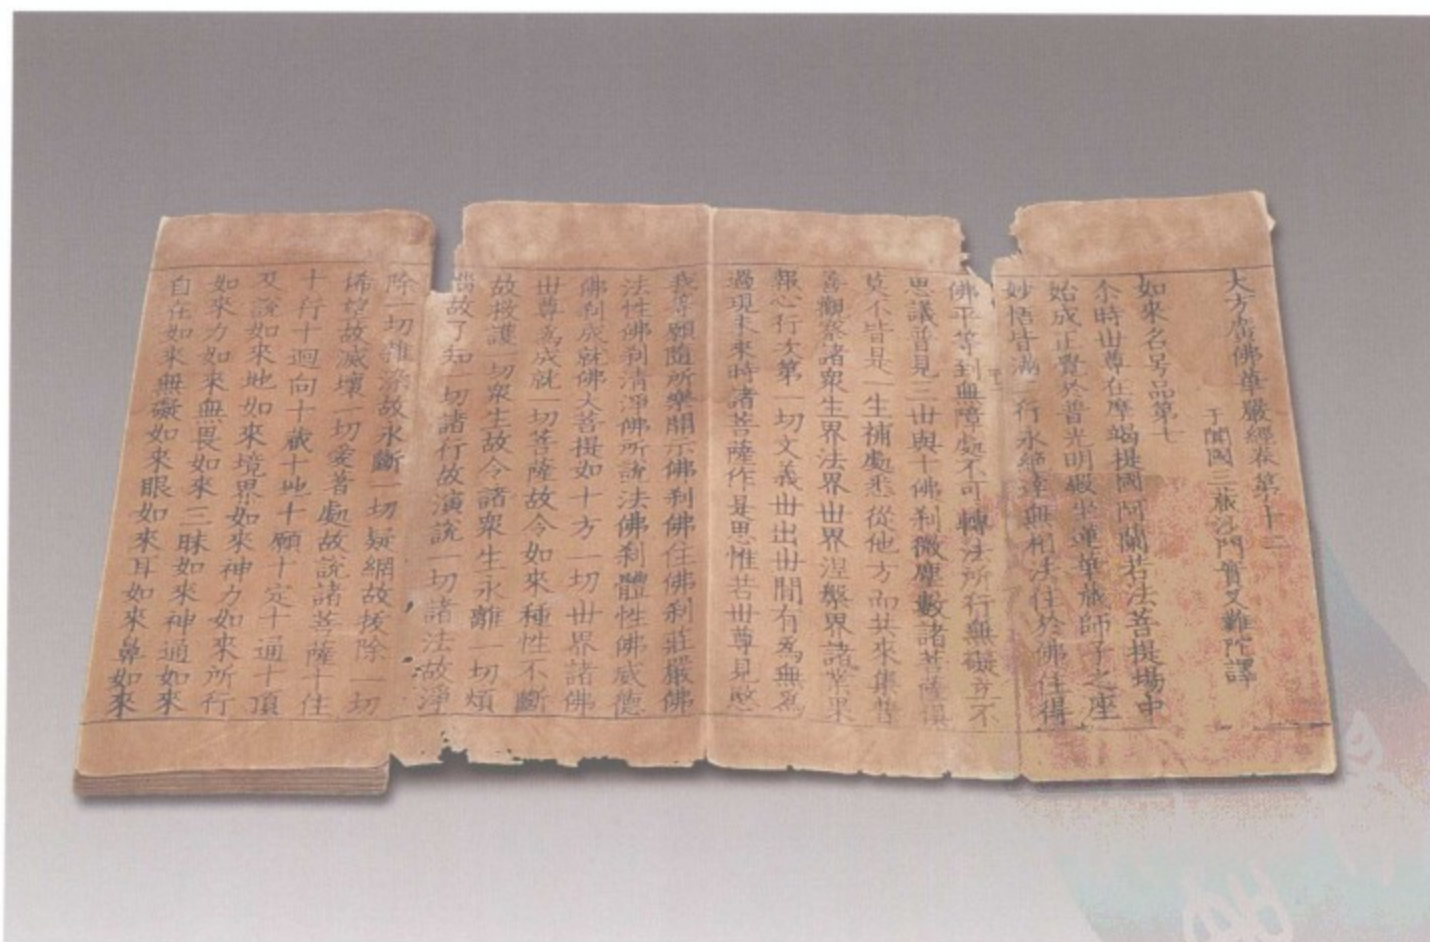 大方廣佛華嚴經卷第十二
于闐國三藏沙門實叉難陀譯
如來名号品第七
尒時丗尊在摩竭提國阿蘭若法菩提場中
始成正覺於普光明殿坐蓮華藏師子之座
妙悟皆滿二行永絕達無相法住於佛住得
佛平等到無障處不可轉法所行無礙立不
思議普見三丗與十佛刹微塵數諸菩薩俱
莫不皆是一生補處悉從他方而共來集普
善觀察諸衆生界法界丗界涅槃界諸業果
報心行次第一切文義丗出丗間有爲無爲
過現未來時諸菩薩作是思惟若丗尊見愍
我等願隨所樂開示佛刹佛住佛刹莊嚴佛
法性佛刹清淨佛所說法佛刹體性佛威德
佛刹成就佛大菩提如十方一切丗界諸佛
丗尊爲成就一切菩薩故令如來種性不斷
故救護一切衆生故令諸衆生永離一切煩
惱故了知一切諸行故演說一切諸法故淨
除一切雜染故永斷一切疑網故拔除一切
悕望故滅壞一切愛著處故說諸菩薩十住
十行十迴向十藏十地十願十定十通十頂
及說如來地如來境界如來神力如來所行
如來力如來無畏如來三昧如來神通如來
自在如來無礙如來眼如來耳如來鼻如來